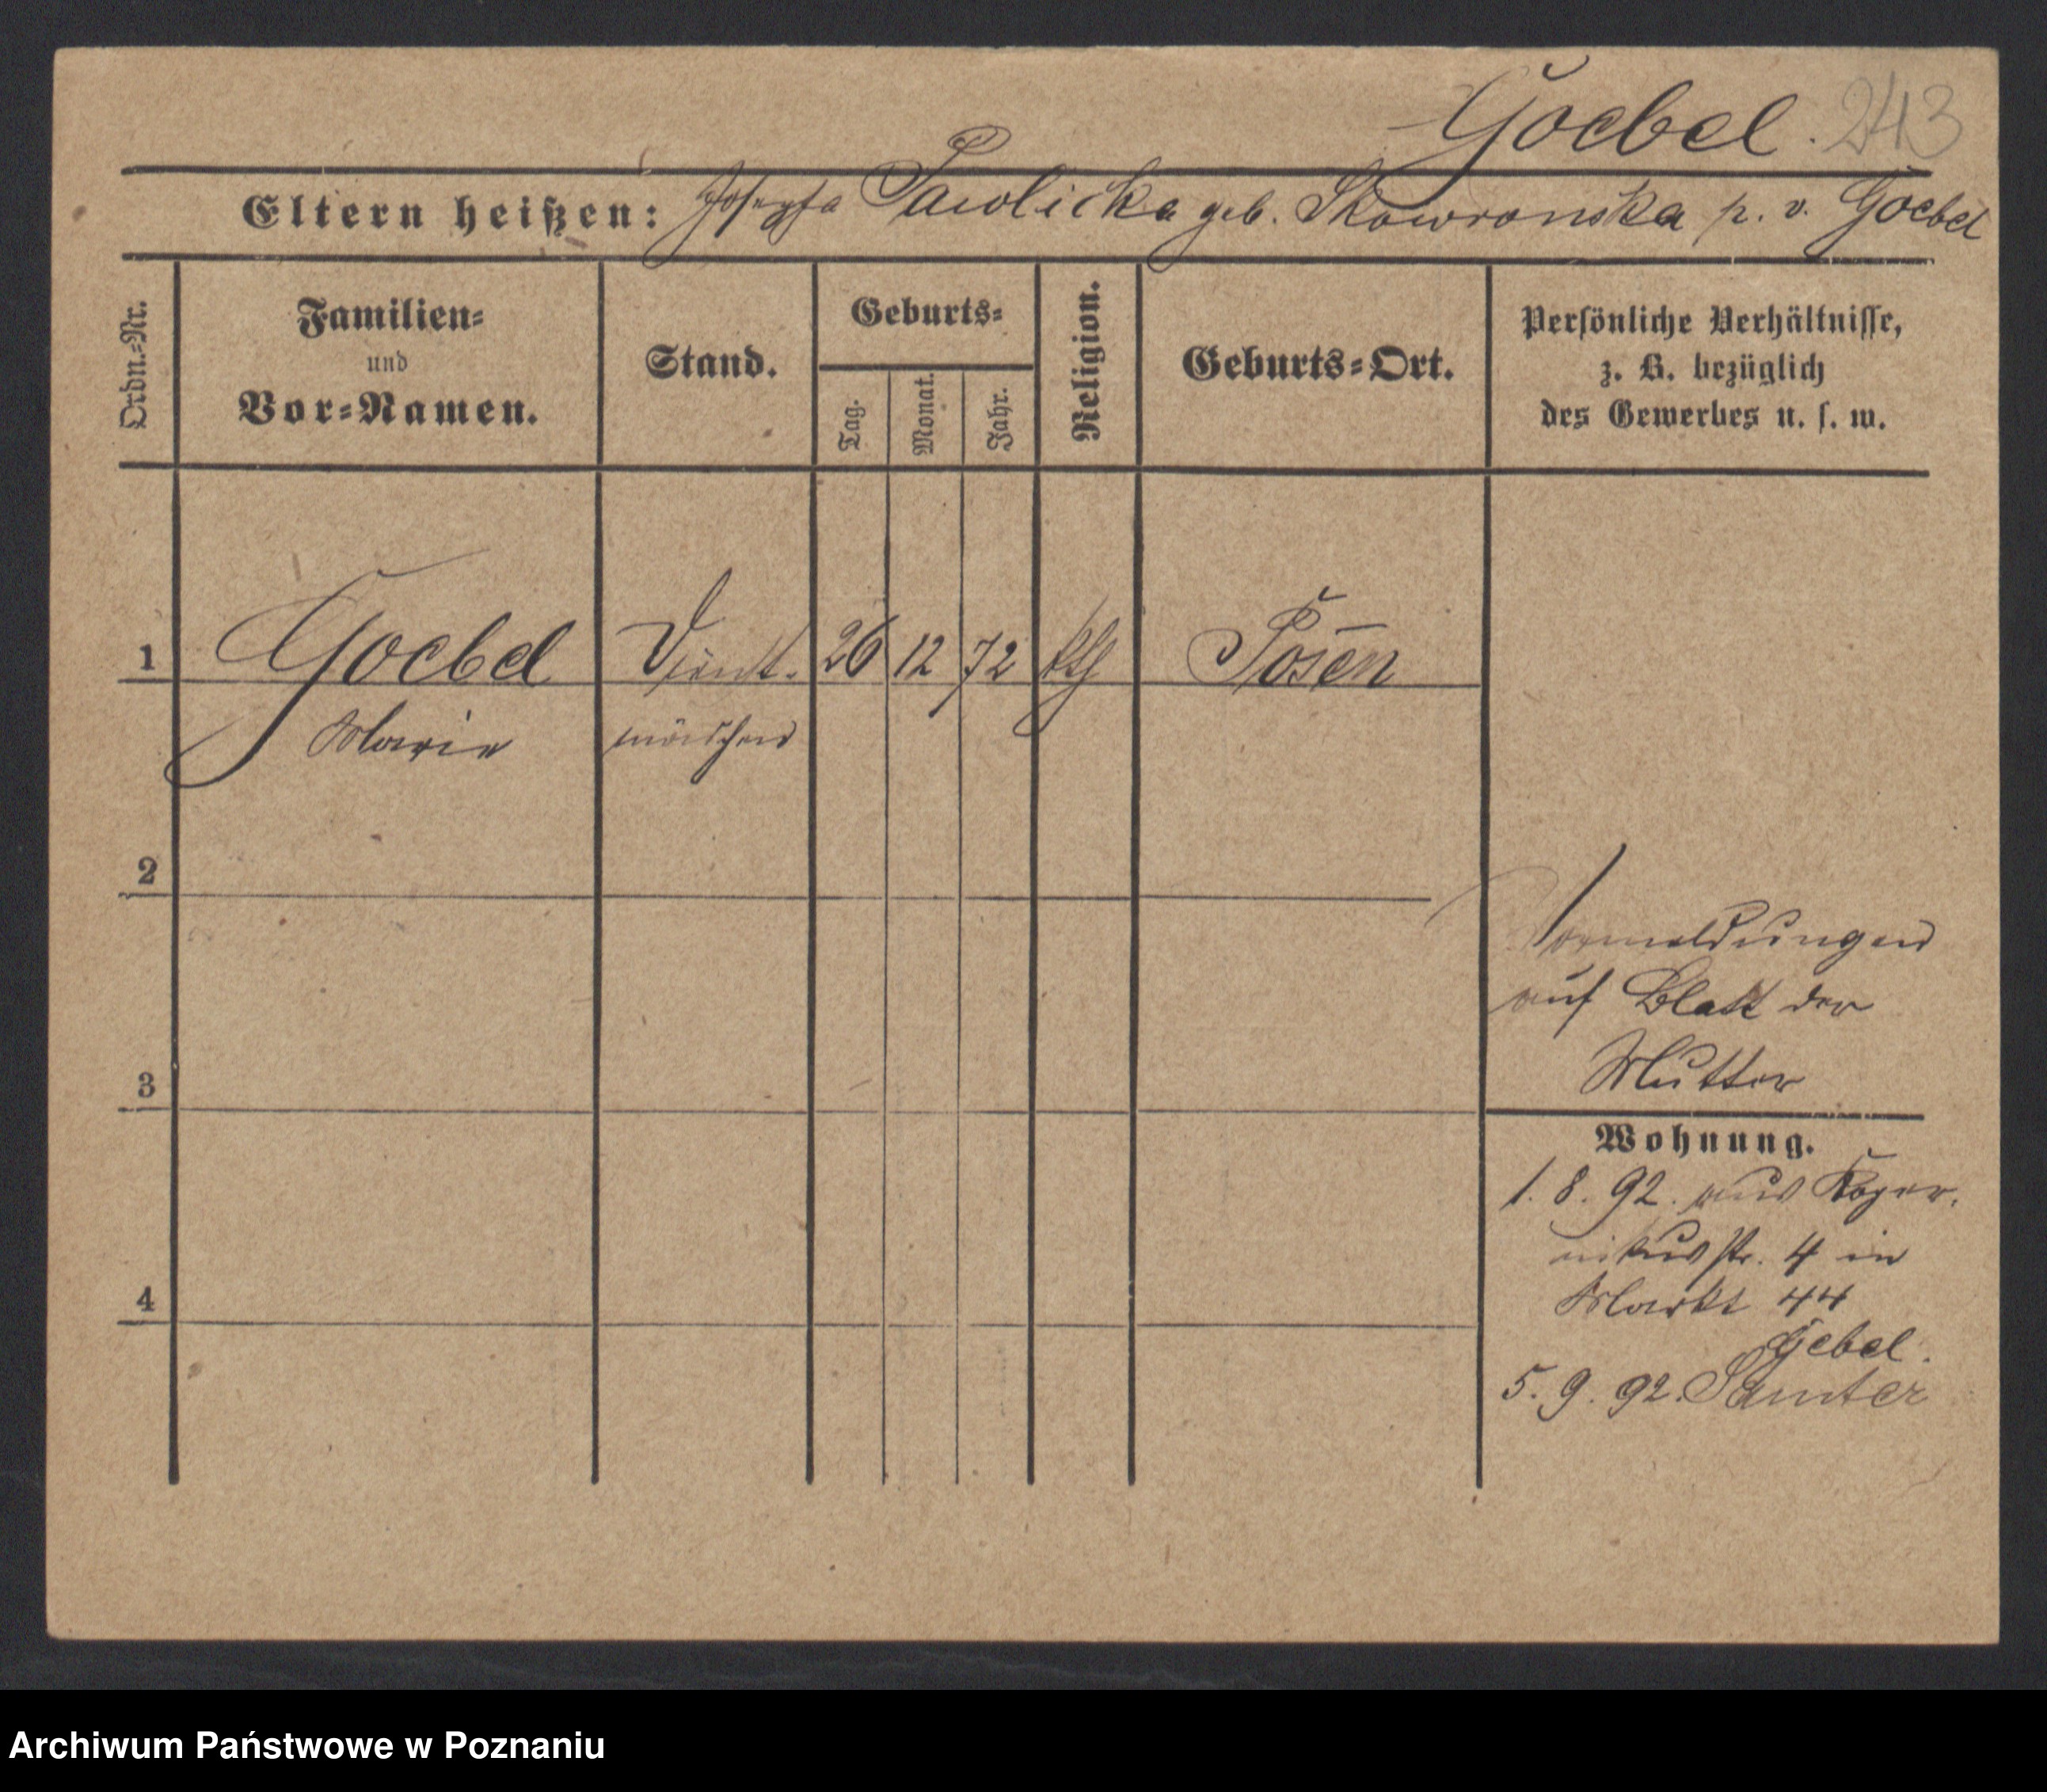 Goebel. 243
Eltern heißen: Josepha Pawlicka geb. Skowronska p. v. Goebel
Ordn.=Nr.
Familien=
und
Vor=Namen.
Stand.
Geburts=
Tag.
Monat.
Jahr.
Religion.
Geburts=Ort.
Persönliche Verhältnisse,
z. B. bezüglich
des Gewerbes u. s. w.
1 Goebel Dienst. 26 12 72 kth Posen
Marie mädchen
2
Vormeldungen
auf Blatt der
Mutter
3
Wohnung.
1. 8. 92. aus Koper.
nikusstr. 4 in
Markt 44
4
Gebel.
5. 9. 92. Samter
Archiwum Państwowe w Poznaniu